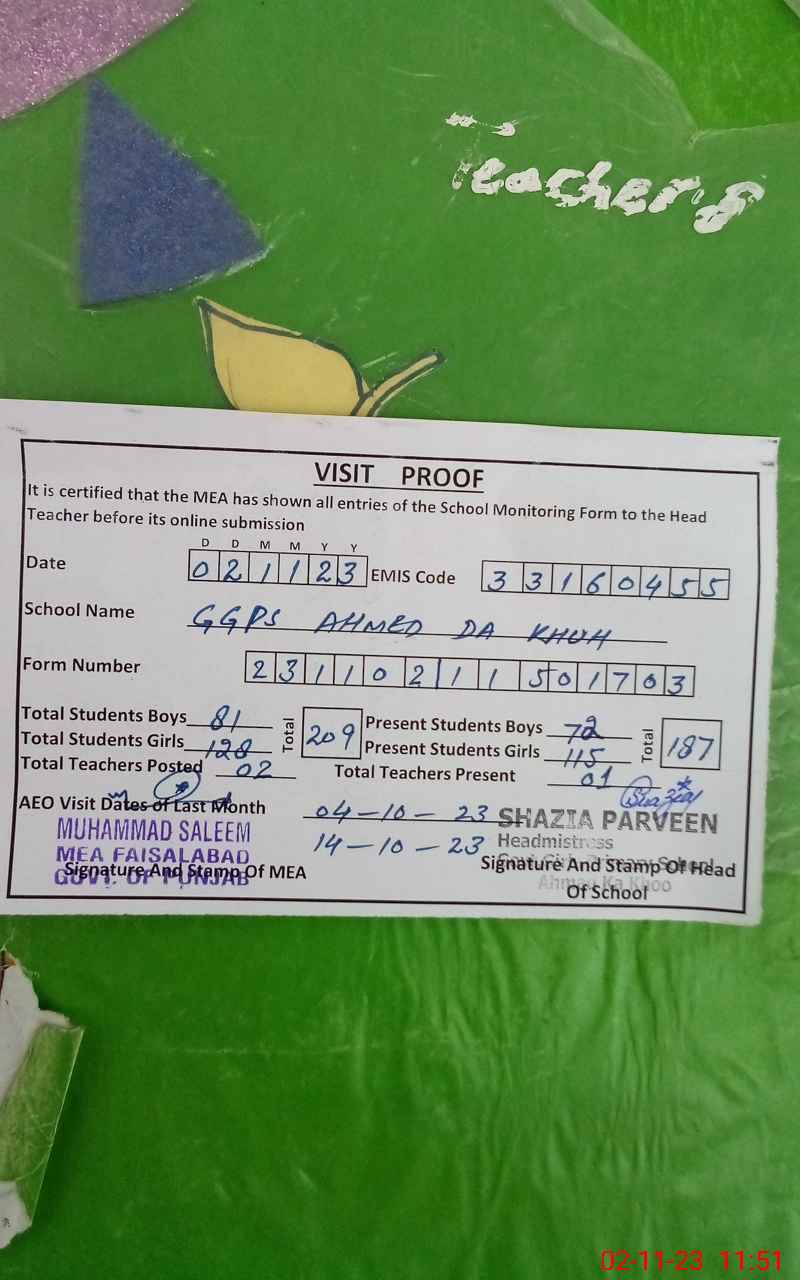 Teachers
VISIT PROOF
It is certified that the MEA has shown all entries of the School Monitoring Form to the Head
Teacher before its online submission
D D M M Y Y
Date 021123 EMIS Code 33160455
School Name GGPS AHMED DA KHUH
Form Number 23110211501703
Total Students Boys 81 Total 209 Present Students Boys 72 Total 187
Total Students Girls 128 Present Students Girls 115
Total Teachers Posted 02 Total Teachers Present 01
AEO Visit Dates of Last Month 04-10-23
14-10-23
MUHAMMAD SALEEM
MEA FAISALABAD
GOVT. OF PUNJAB
Signature And Stamp Of MEA
Shazia
SHAZIA PARVEEN
Headmistress
Govt. Girls Primary School
Ahmad Ka Khoo
Signature And Stamp Of Head
Of School
02-11-23 11:51